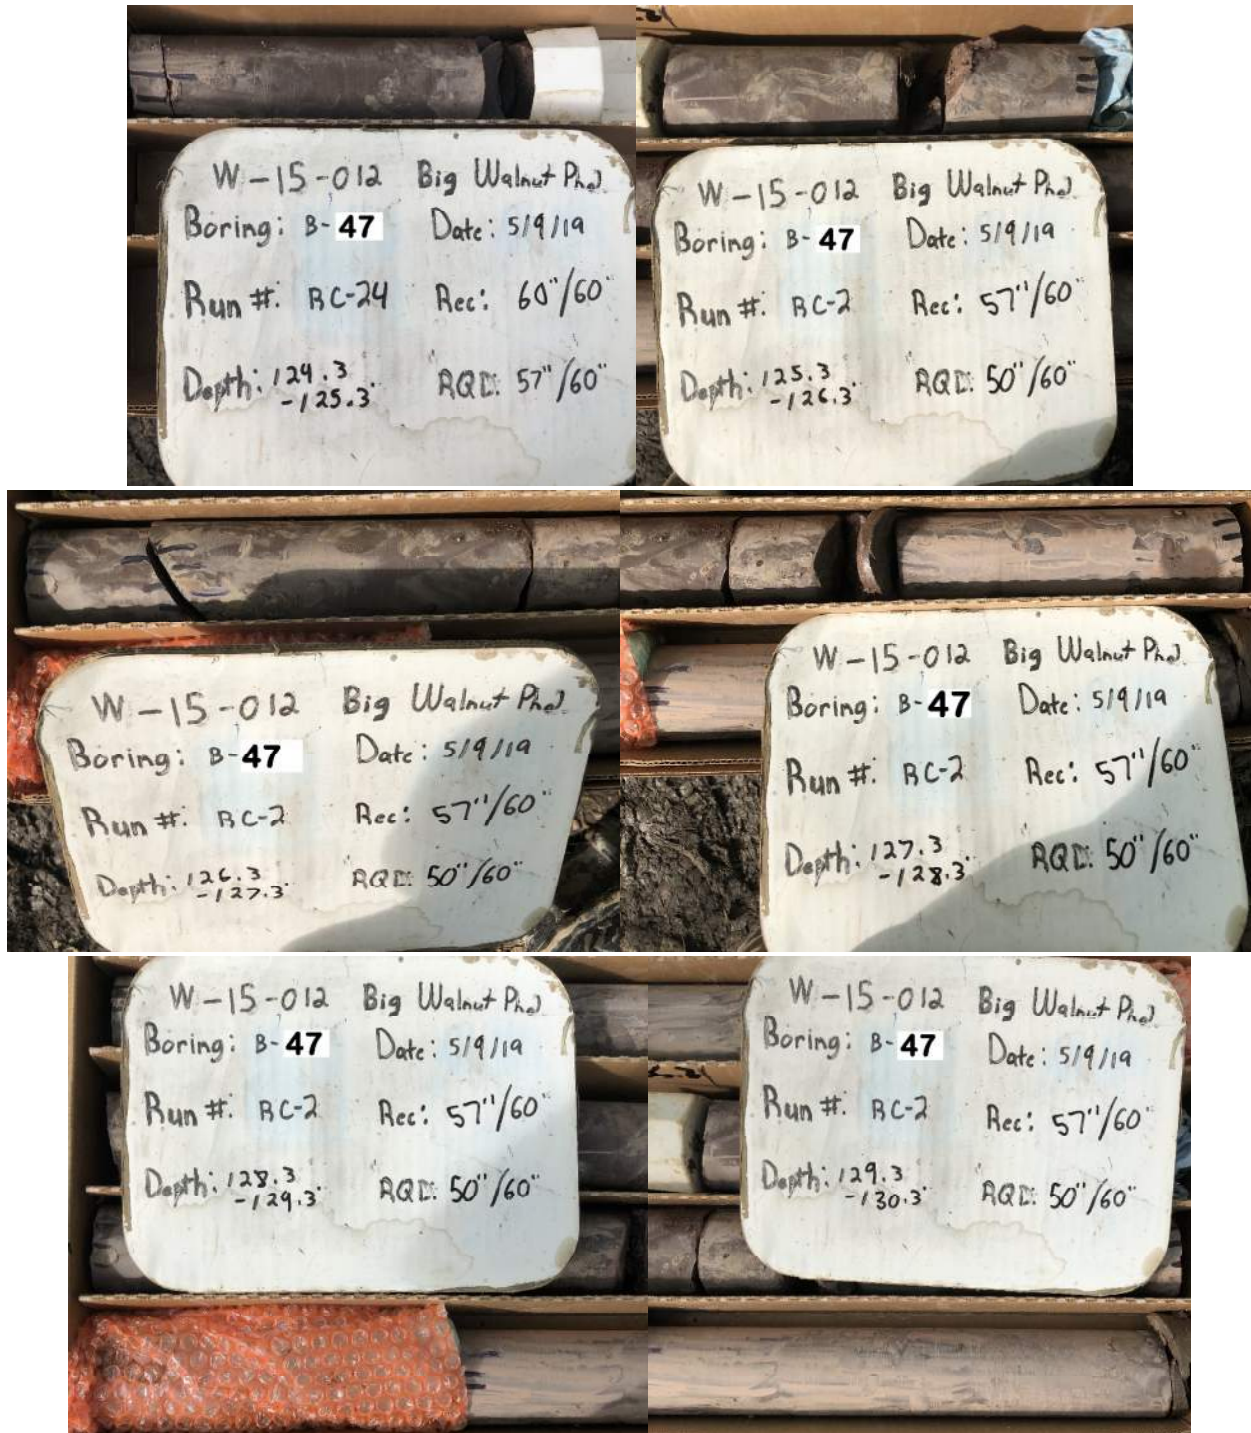 W-15-012 Big Walnut Ph2
Boring: B-47 Date: 5/9/19
Run #: RC-24 Rec: 60"/60"
Depth: 124.3 RQD: 57"/60"
-125.3'
W-15-012 Big Walnut Ph2
Boring: B-47 Date: 5/9/19
Run #: RC-2 Rec: 57"/60"
Depth: 125.3 RQD: 50"/60"
-126.3'
W-15-012 Big Walnut Ph2
Boring: B-47 Date: 5/9/19
Run #: RC-2 Rec: 57"/60"
Depth: 126.3 RQD: 50"/60"
-127.3'
W-15-012 Big Walnut Ph2
Boring: B-47 Date: 5/9/19
Run #: RC-2 Rec: 57"/60"
Depth: 127.3 RQD: 50"/60"
-128.3'
W-15-012 Big Walnut Ph2
Boring: B-47 Date: 5/9/19
Run #: RC-2 Rec: 57"/60"
Depth: 128.3 RQD: 50"/60"
-129.3'
W-15-012 Big Walnut Ph2
Boring: B-47 Date: 5/9/19
Run #: RC-2 Rec: 57"/60"
Depth: 129.3 RQD: 50"/60"
-130.3'